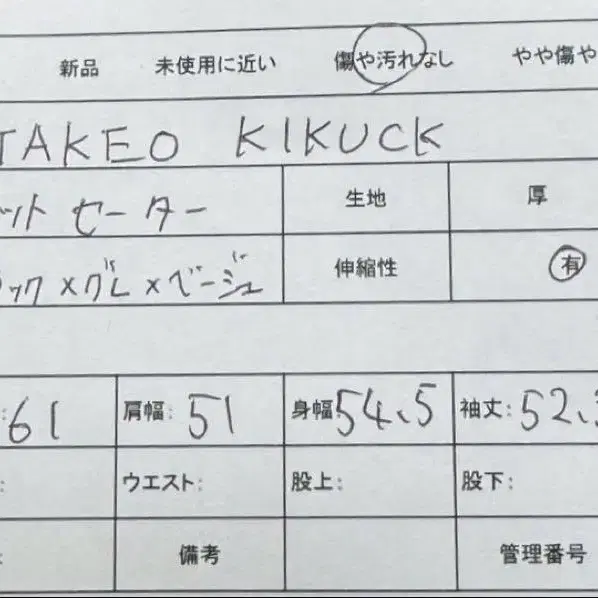 新品 未使用に近い 傷や汚れなし やや傷や
TAKEO KIKUCK
ット セーター 生地 厚
ック×グレ×ベージュ 伸縮性 有
61 肩幅: 51 身幅 54.5 袖丈: 52.
ウエスト: 股上: 股下:
備考 管理番号